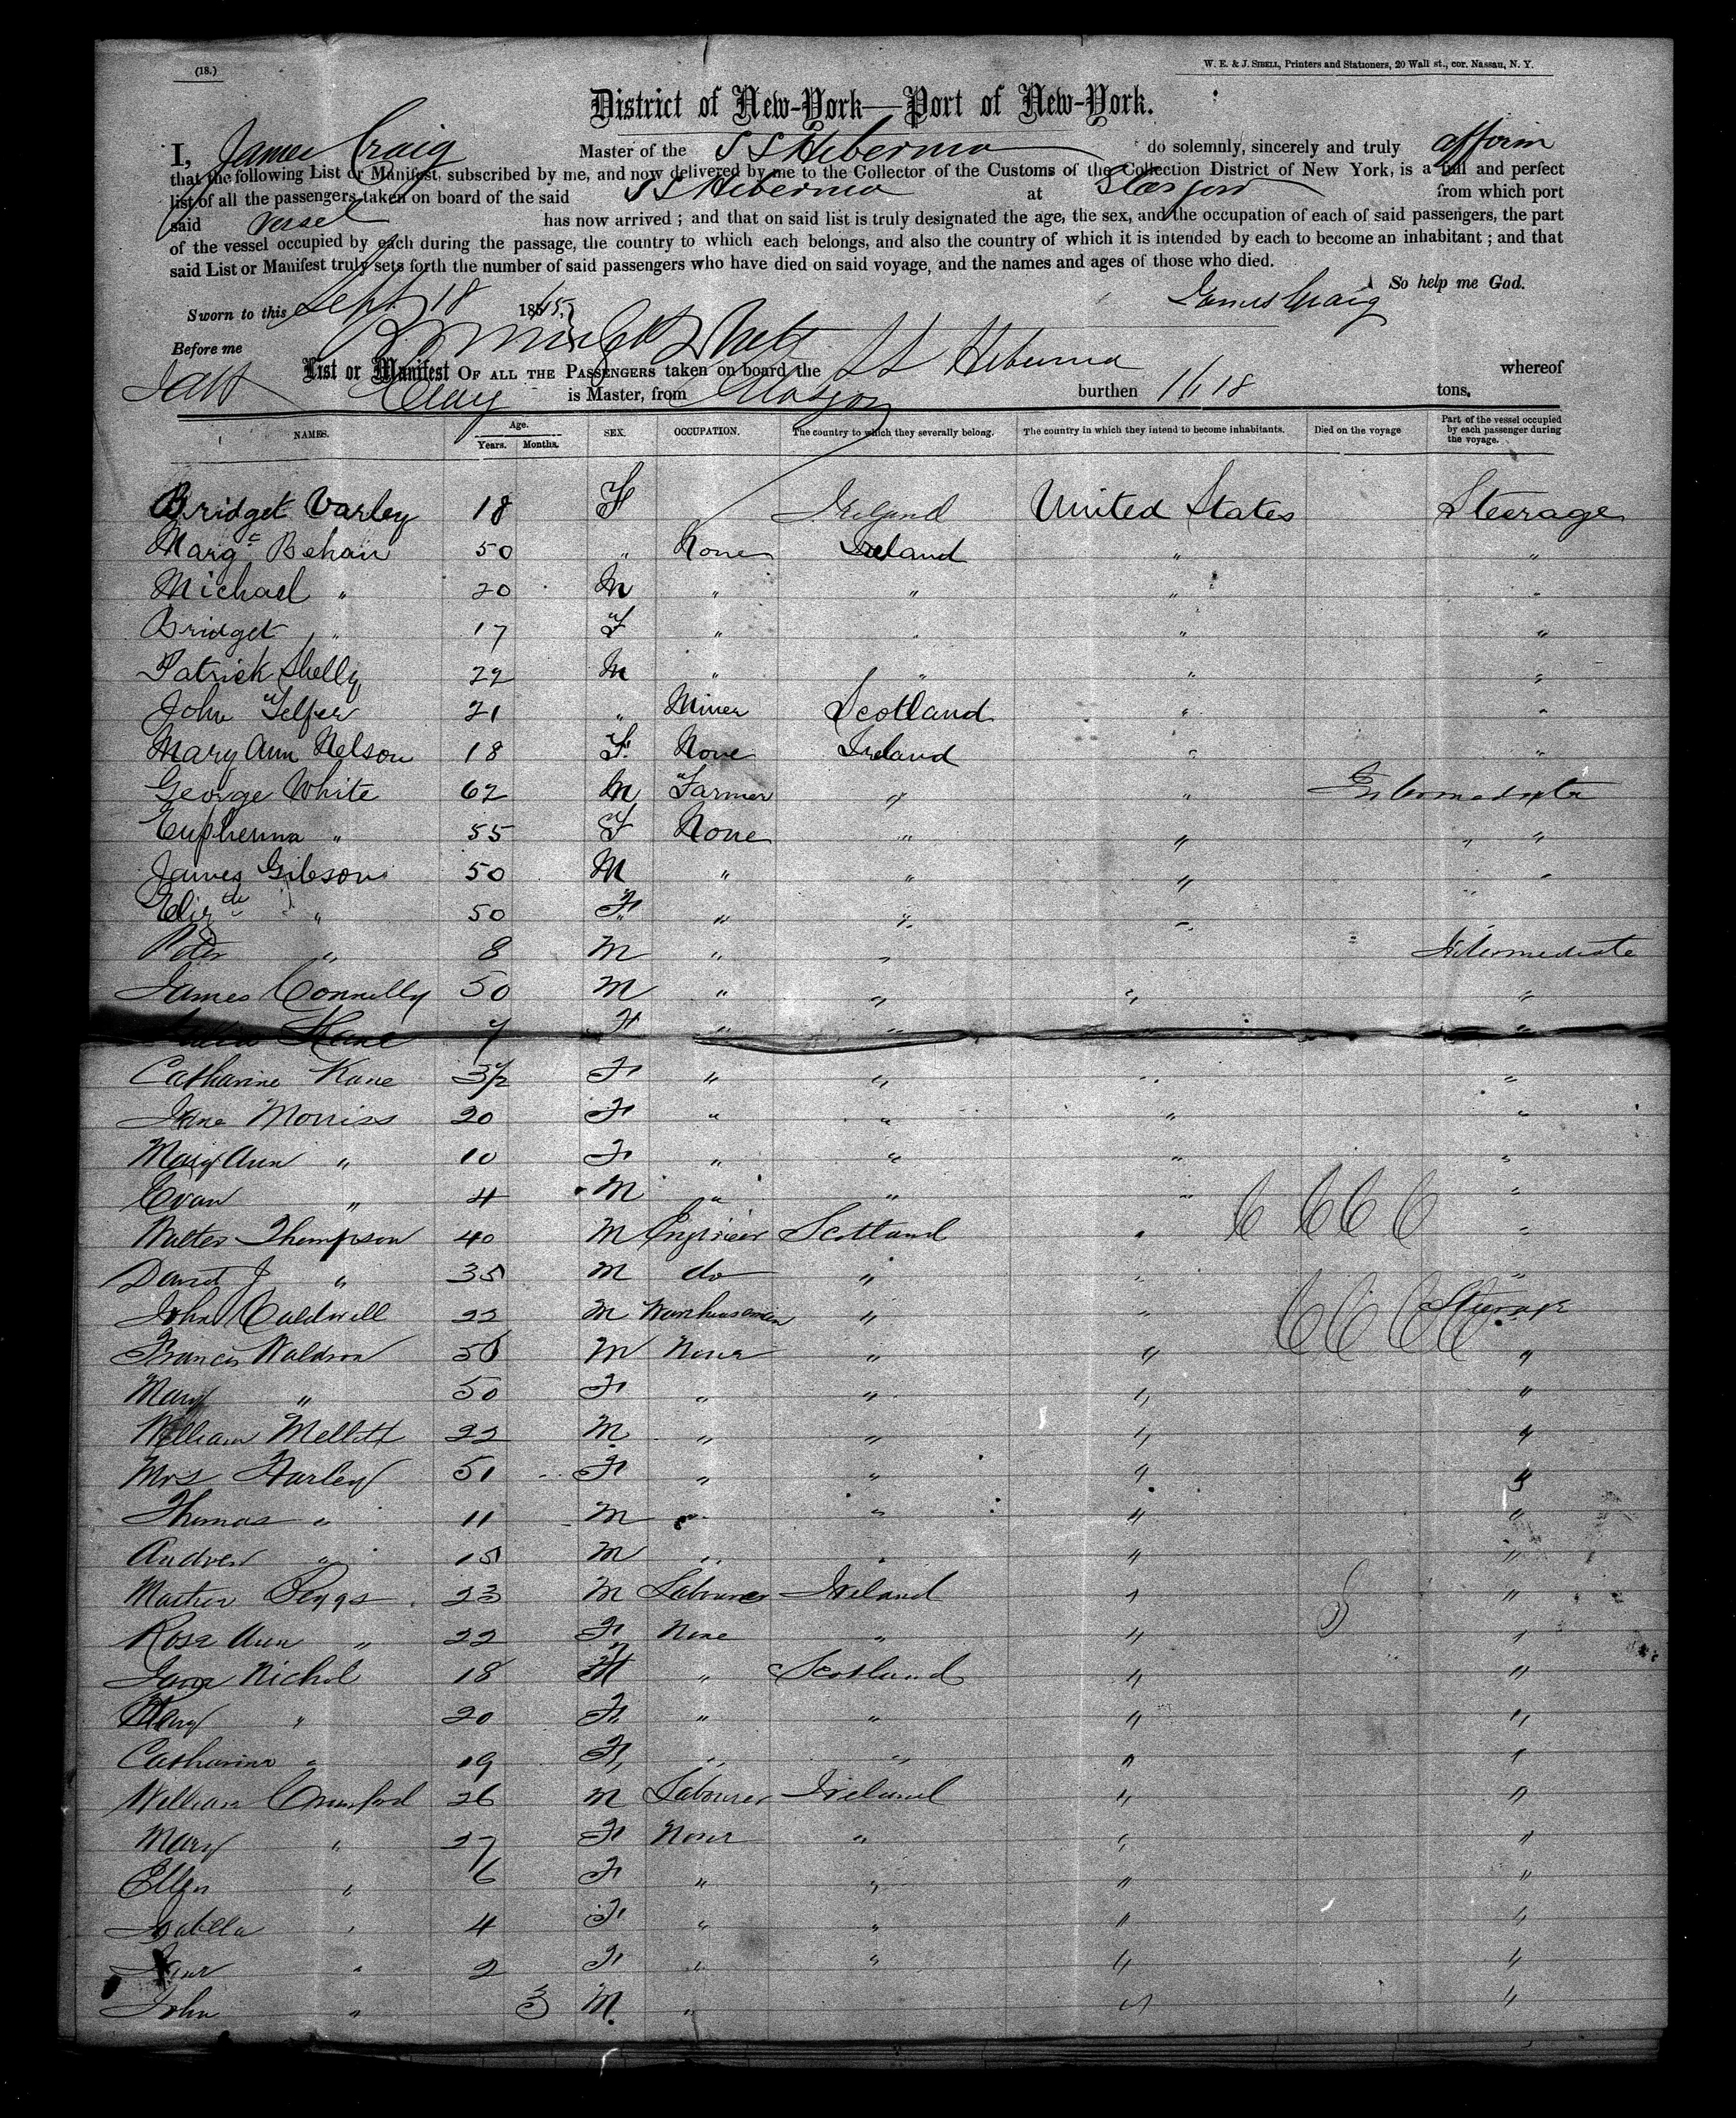 (18.)
W. E. & J. SIBELL, Printers and Stationers, 20 Wall st., cor. Nassau, N. Y.
District of New-York—Port of New-York.
I, James Craig Master of the S S Hibernia do solemnly, sincerely and truly affirm
that the following List or Manifest, subscribed by me, and now delivered by me to the Collector of the Customs of the Collection District of New York, is a full and perfect
list of all the passengers taken on board of the said S S Hibernia at Glasgow from which port
said Vessel has now arrived ; and that on said list is truly designated the age, the sex, and the occupation of each of said passengers, the part
of the vessel occupied by each during the passage, the country to which each belongs, and also the country of which it is intended by each to become an inhabitant ; and that
said List or Manifest truly sets forth the number of said passengers who have died on said voyage, and the names and ages of those who died.
So help me God.
Sworn to this Sept 18 1865, James Craig
Before me
List or Manifest OF ALL THE PASSENGERS taken on board the SS Hibernia whereof
Craig is Master, from Glasgow burthen 1618 tons.
NAMES. Age. Years. Months. SEX. OCCUPATION. The country to which they severally belong. The country in which they intend to become inhabitants. Died on the voyage Part of the vessel occupied by each passenger during the voyage.
Bridget Varley 18 F Ireland United States Steerage
Margt Behan 50 " None Ireland " "
Michael " 20 M " " " "
Bridget " 17 F " " " "
Patrick Shelly 22 M " " " "
John Telfer 21 " Miner Scotland " "
Mary Ann Nelson 18 F. None Ireland " "
George White 62 M Farmer " " Intermediate
Euphemia " 55 F None " " " "
James Gibson 50 M " " " "
Elizth " 50 F " " "
Peter " 8 M " " Intermediate
James Connelly 50 M " " " "
Kane 7 F " " "
Catharine Kane 3½ F " " " "
Jane Morriss 20 F " " " "
Mary Ann " 10 F " " " "
Evan " 4 M " " " "
Walter Thompson 40 M Engineer Scotland " "
David J " 35 M do " " "
John Caldwell 22 M Warehouseman " " Steerage
Francis Waldron 50 M None " " "
Mary " 50 F " " " "
William Mellitt 22 M " " " "
Mrs Harley 51 F " " " "
Thomas " 11 M " " " "
Andrew " 15 M " " " "
Mather Beggs 23 M Labourer Ireland " "
Rose Ann " 22 F None " " "
Jane Nichol 18 F " Scotland " "
Mary " 20 F " " " "
Catharine " 19 F " " " "
William Crawford 26 M Labourer Ireland " "
Mary " 27 F None " " "
Ellen " 6 F " " " "
Isabella " 4 F " " " "
Jane " 2 F " " " "
John " 3 M. " " "